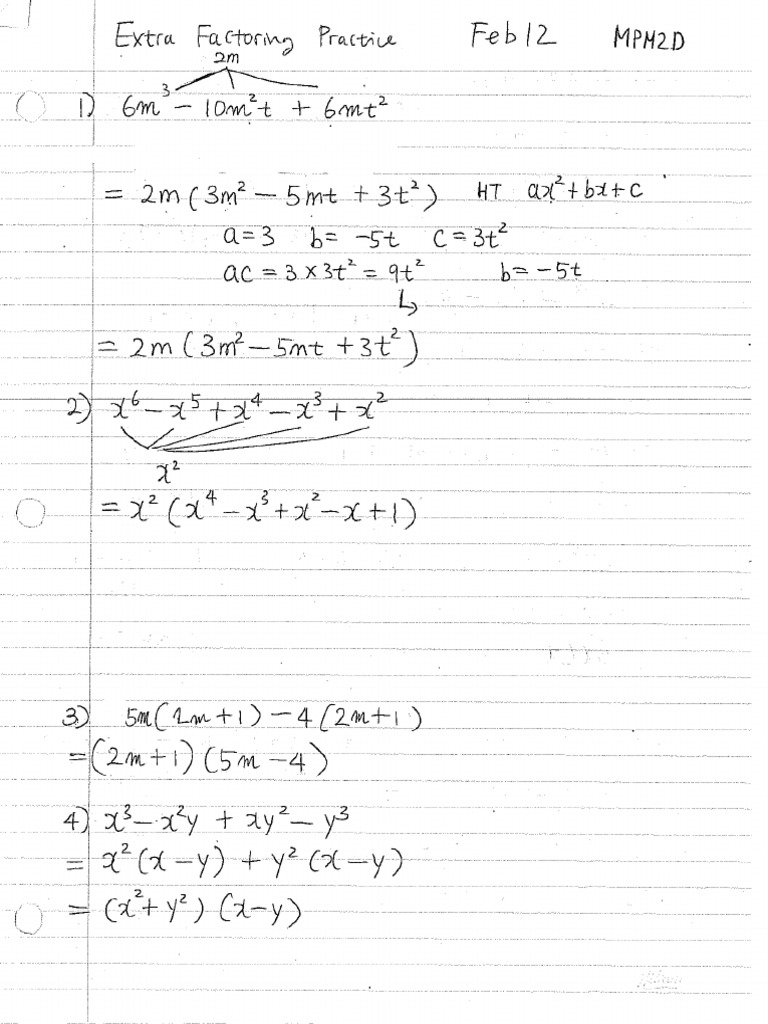 Extra Factoring Practice Feb 12 MPM2D
2m
1) 6m³ - 10m²t + 6mt²
= 2m(3m² - 5mt + 3t²) HT ax² + bx + c
a = 3 b = -5t c = 3t²
ac = 3 × 3t² = 9t² b = -5t
↳
= 2m(3m² - 5mt + 3t²)
2) x⁶ - x⁵ + x⁴ - x³ + x²
x²
= x²(x⁴ - x³ + x² - x + 1)
3) 5m(2m+1) - 4(2m+1)
= (2m+1)(5m-4)
4) x³ - x²y + xy² - y³
= x²(x-y) + y²(x-y)
= (x² + y²)(x-y)